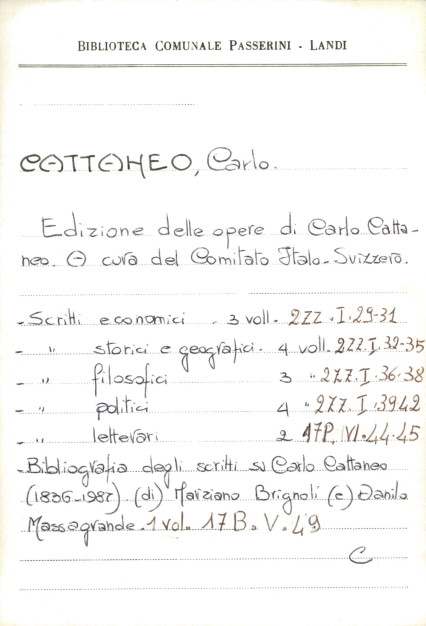 BIBLIOTECA COMUNALE PASSERINI - LANDI
CATTANEO, Carlo.
Edizione delle opere di Carlo Catta-
neo. A cura del Comitato Italo-Svizzero.
- Scritti economici - 3 voll. 2ZZ.I.29-31
- " storici e geografici. 4 voll. 2ZZ.I.32-35
- " filosofici 3 " 2ZZ.I.36-38
- " politici 4 " 2ZZ.I.3942
- " letterari 2 17P.VI.44-45
- Bibliografia degli scritti su Carlo Cattaneo
(1836-1987) (di) Marziano Brignoli (e) Danilo
Massagrande. 1 vol. 17B.V.49
C